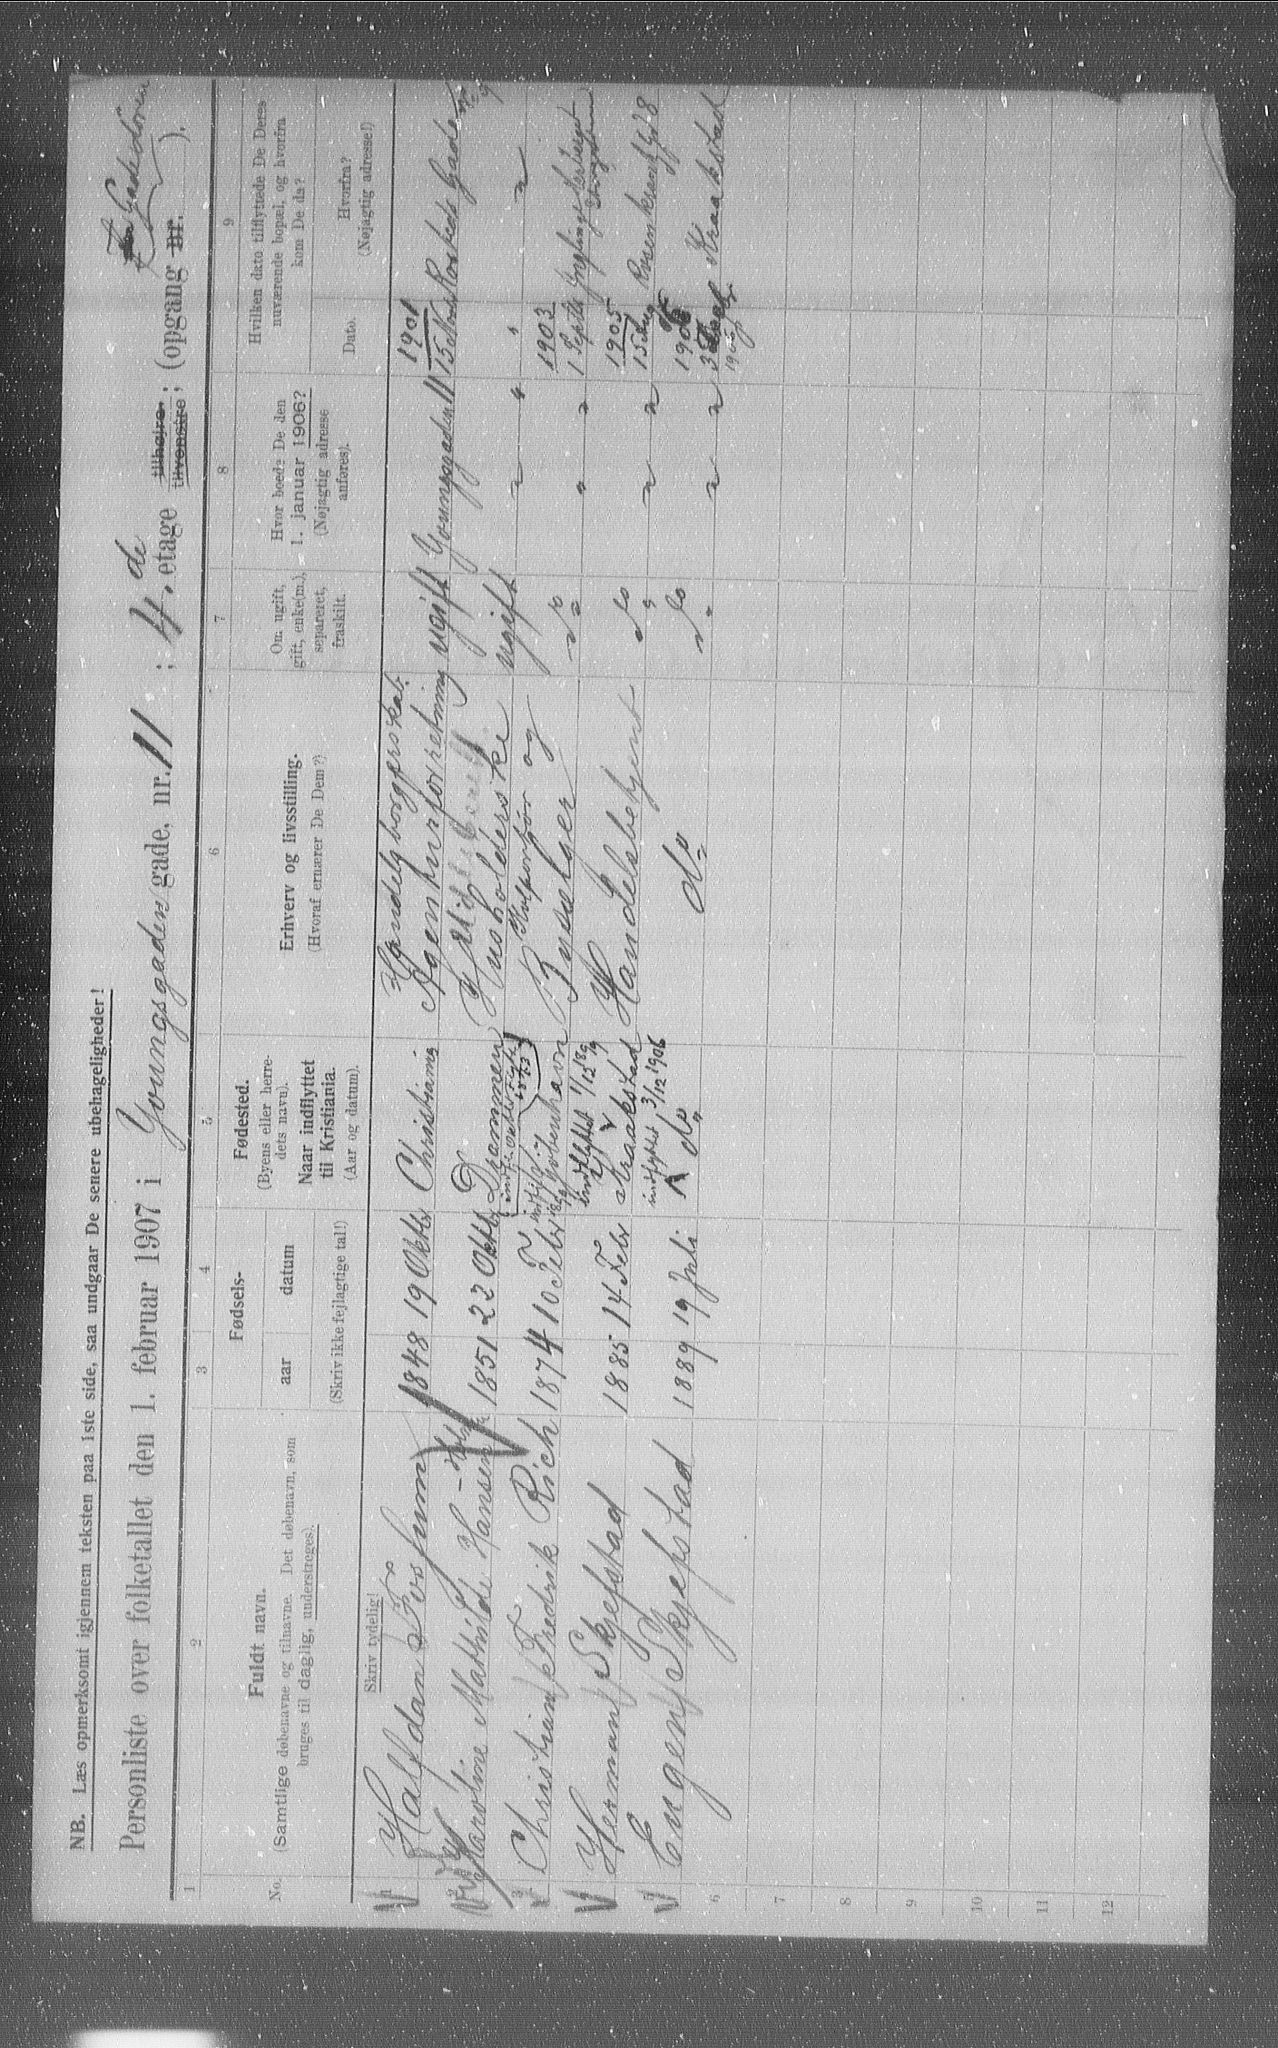 NB. Læs opmerksomt igjennem teksten paa 1ste side, saa undgaar De senere ubehageligheder!
Personliste over folketallet den 1. februar 1907 i Youngsgaden gade, nr. 11 ; 4.de etage tilhøjre. tilvenstre; (opgang nr. Gadedøren ).
1 2 3 4 5 6 7 8 9
No.
Fuldt navn.
(Samtlige døbenavne og tilnavne. Det døbenavn, som
bruges til daglig, understreges).
Fødsels-
aar datum
(Skriv ikke fejlagtige tal!)
Fødested.
(Byens eller herre-
dets navn).
Naar indflyttet
til Kristiania.
(Aar og datum).
Erhverv og livsstilling.
(Hvoraf ernærer De Dem?)
Om ugift,
gift, enke(m.),
separeret,
fraskilt.
Hvor boede De den
1. januar 1906?
(Nøjagtig adresse
anføres).
Hvilken dato tilflyttede De Deres
nuværende bopæl, og hvorfra
kom De da?
Dato.
Hvorfra?
(Nøjagtig adresse!)
Skriv tydelig!
1 Halfdan Fossum 1848 19 Oktbr Christiania Handelsborgerskab. Agenturforretning ugift Youngsgaden 11 1901 15 Novbr Korsteds Gade No 9
2 Karoline Mathilde Hansen 1851 22 Oktbr Drammen Husholderske ugift " " " "
3 Christian Fredrik Rich 1874 10 Febr Kjøbenhavn Kolportør og Bydselger do " " 1903 1 Septbr
4 Herman Skjefstad 1885 14 Febr Kraakstad indflyttet 1/12 Handelsbetjent do " " 1905 15 Aug Rosenkrantzgd 8
5 Eugen Skjefstad 1889 19 Juli do indflyttet 3/12 1906 do do " " 1906 3 Kraakstad
6
7
8
9
10
11
12